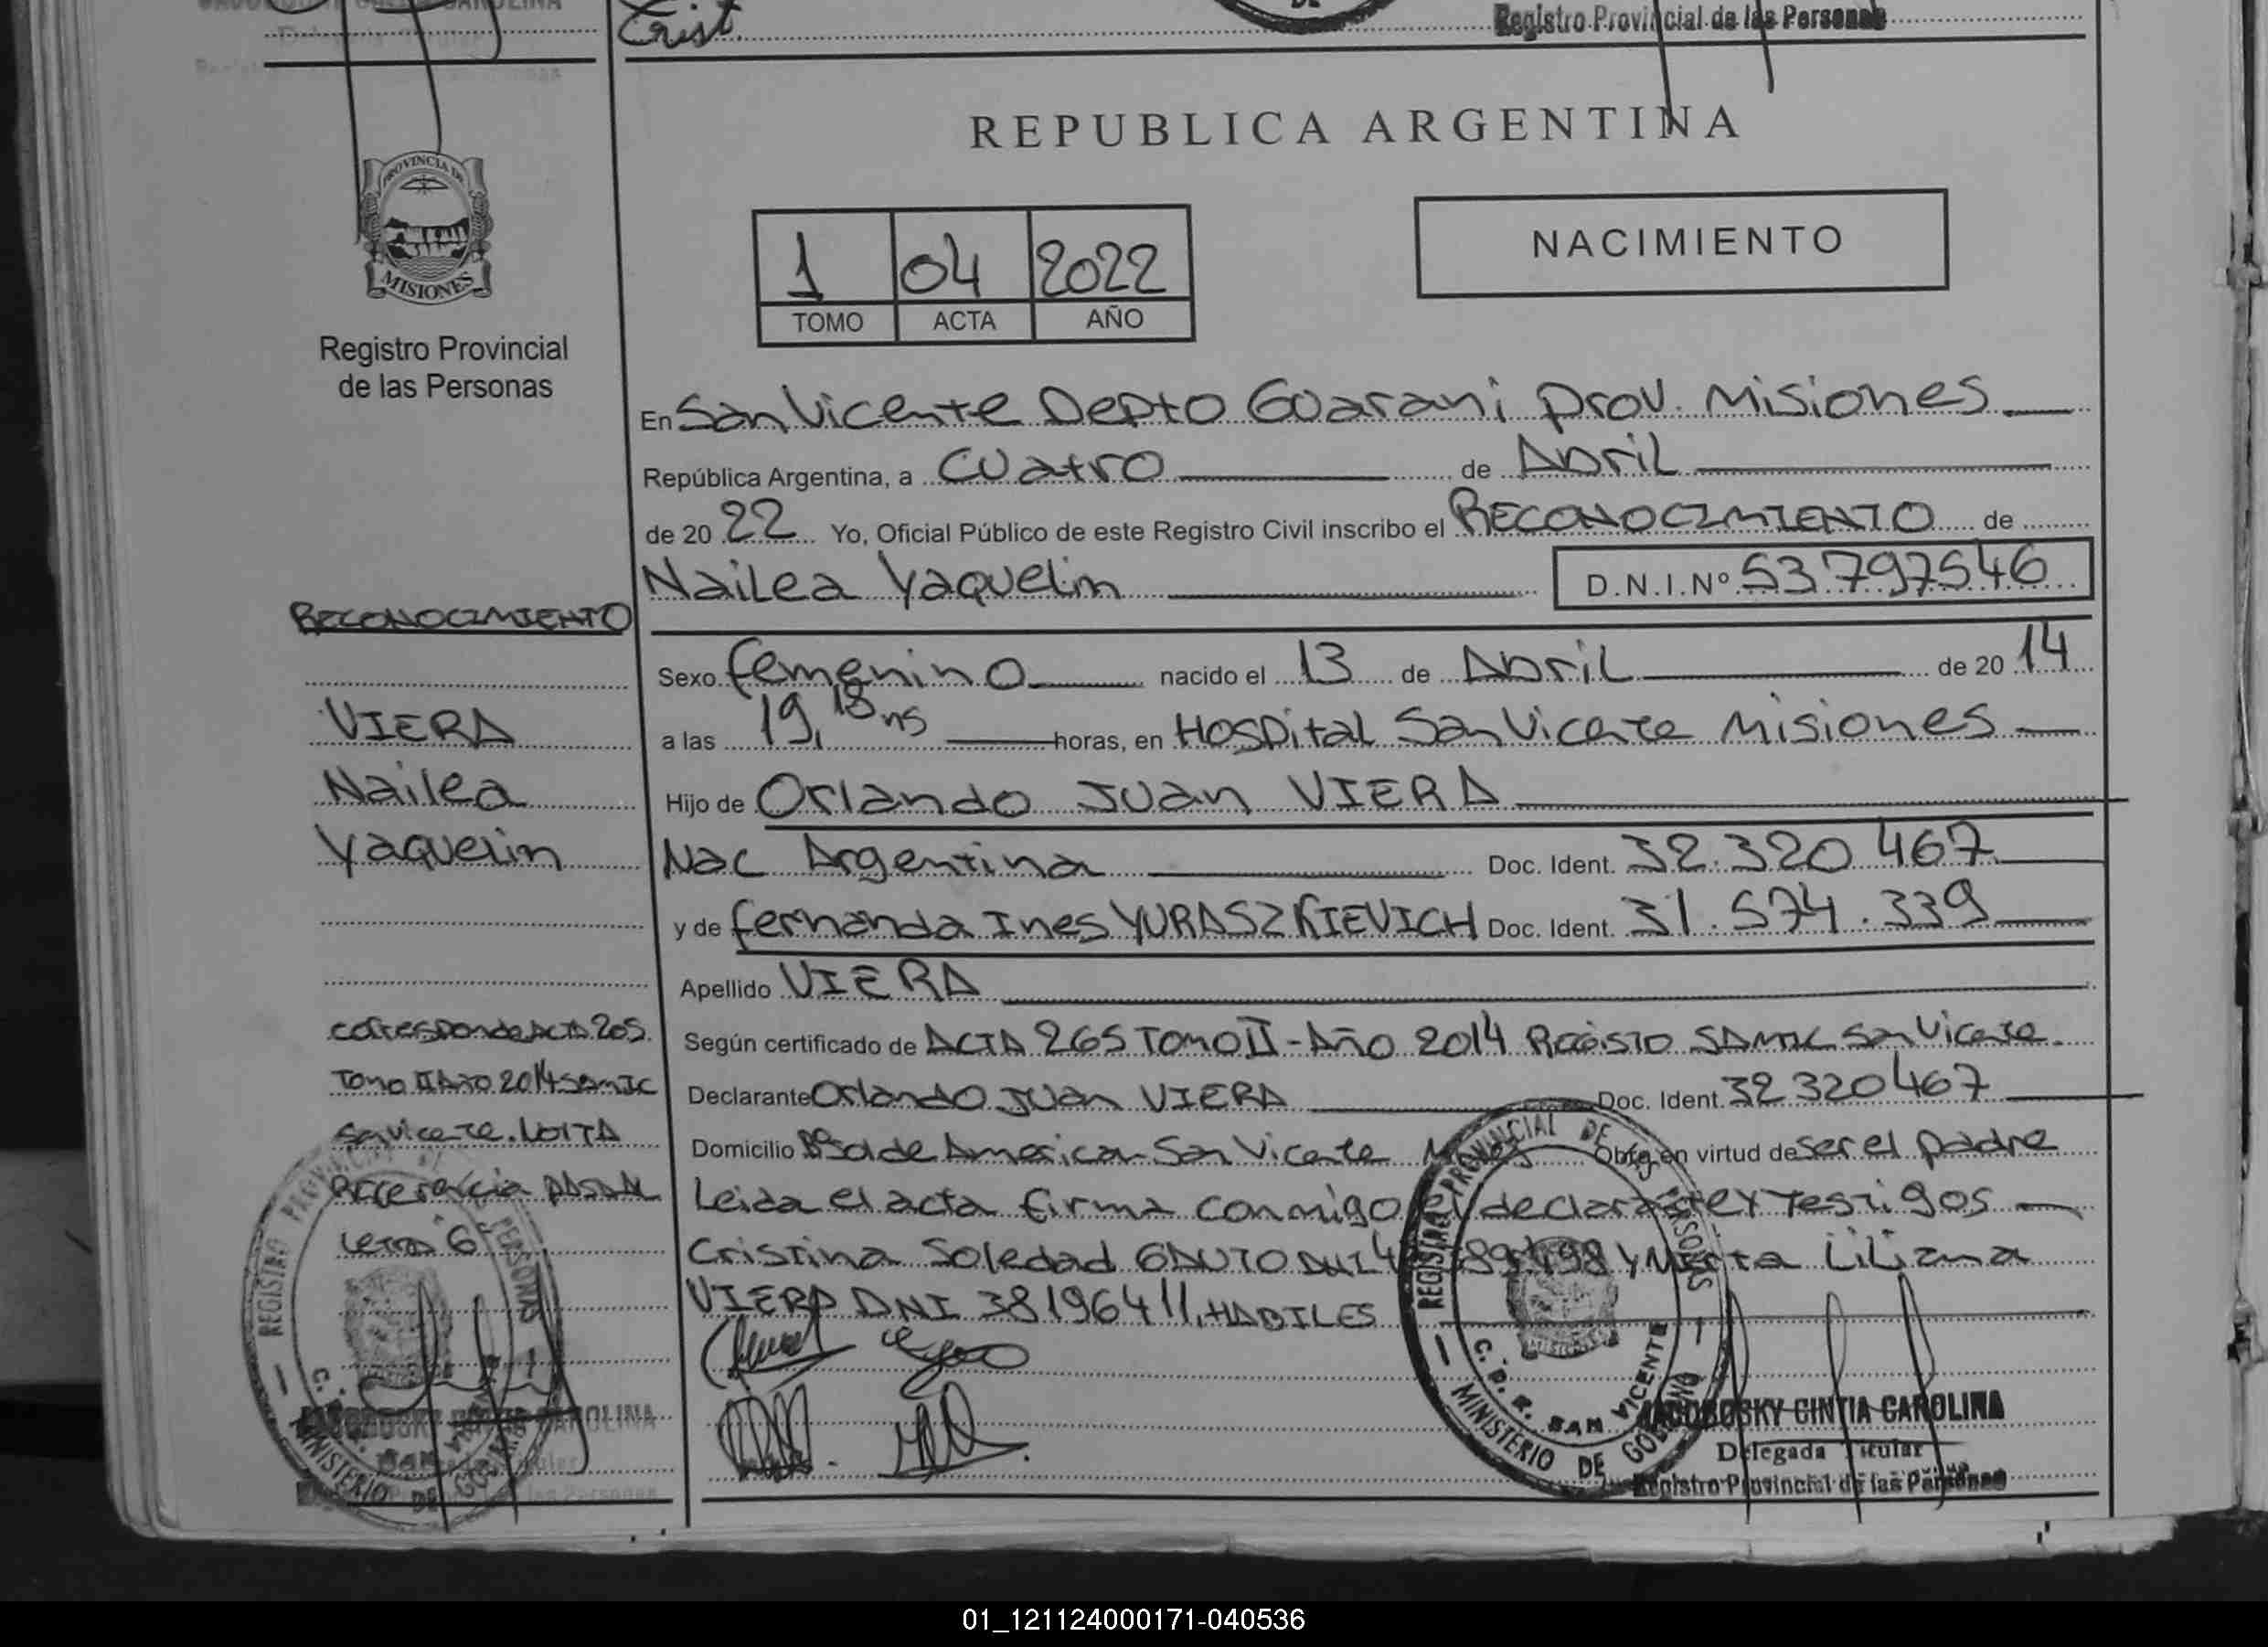 Crist.
Registro Provincial de las Personas
REPUBLICA ARGENTINA
PROVINCIA DE
MISIONES
Registro Provincial
de las Personas
1 04 2022
TOMO ACTA AÑO
NACIMIENTO
En San Vicente Depto Guarani Prov. Misiones
República Argentina, a Cuatro de Abril
de 20 22 Yo, Oficial Público de este Registro Civil inscribo el RECONOCIMIENTO de
Nailea Yaquelin D.N.I.Nº 53.797546
Sexo femenino nacido el 13 de Abril de 20 14
a las 19,18 hs horas, en Hospital San Vicente Misiones
Hijo de Orlando Juan VIERA
Nac Argentina Doc. Ident. 32.320 467
y de fernanda Ines YURASZKIEVICH Doc. Ident. 31.574.339
Apellido VIERA
Según certificado de ACTA 265 TOMO II-Año 2014 SAMIC San Vicente.
Declarante Orlando Juan VIERA Doc. Ident. 32 320467
Domicilio Bº Sol de America San Vicente Obra en virtud de ser el padre
Leida el acta firma conmigo el declarante y testigos
Cristina Soledad GAUTO DNI y Mirta Liliana
VIERA DNI 38196411, HABILES
RECONOCIMIENTO
VIERA
Nailea
Yaquelin
corresponde Acta 265
Tomo II Año 2014 SAMIC
San Vicente. NOTA
Referencia
Letra G
REGISTRO PROVINCIAL DE LAS PERSONAS
C. P. R. SAN VICENTE
MINISTERIO DE GOBIERNO
REGISTRO PROVINCIAL DE LAS PERSONAS
C. P. R. SAN VICENTE
MINISTERIO DE GOBIERNO
CINTIA CAROLINA
Delegada Titular
Registro Provincial de las Personas
01_121124000171-040536